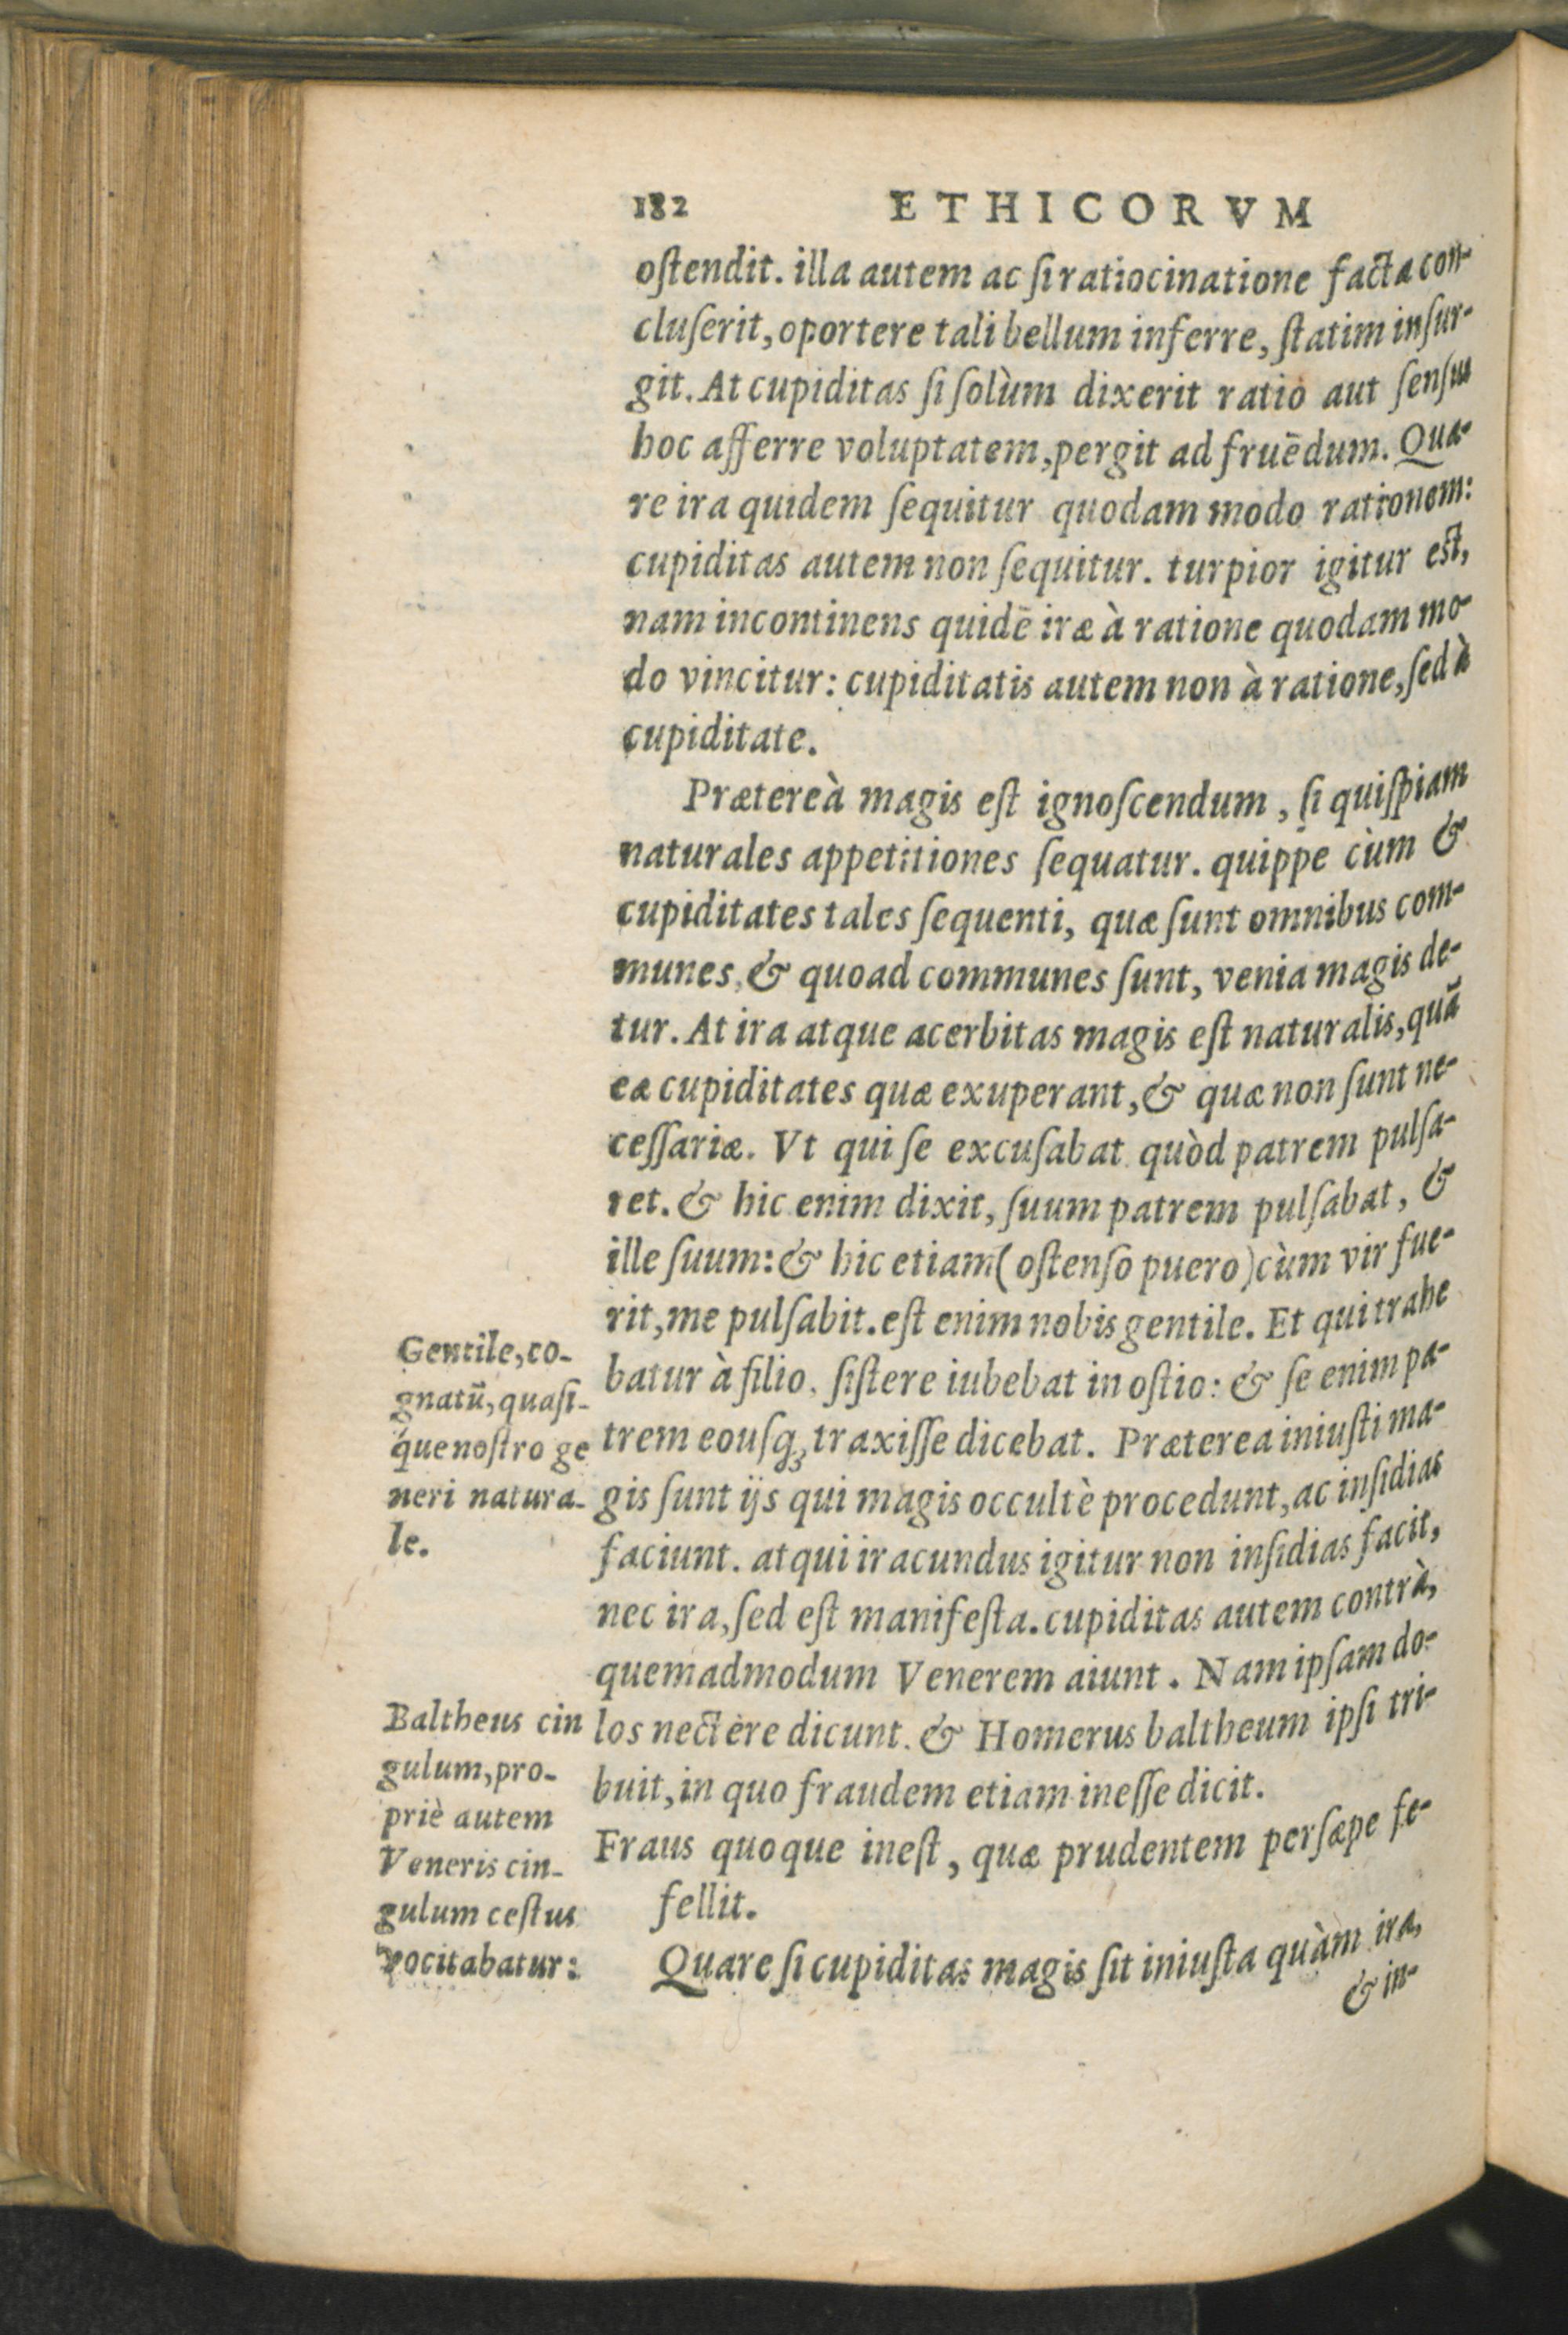 182 ETHICORVM
oſtendit. illa autem ac ſi ratiocinatione facta con-
cluſerit, oportere tali bellum inferre, ſtatim inſur-
git. At cupiditas ſi ſolùm dixerit ratio aut ſenſus
hoc afferre voluptatem, pergit ad fruēdum. Qua-
re ira quidem ſequitur quodam modo rationem:
cupiditas autem non ſequitur. turpior igitur eſt,
nam incontinens quidē iræ à ratione quodam mo-
do vincitur: cupiditatis autem non à ratione, ſed à
cupiditate.
Prætereà magis eſt ignoſcendum, ſi quiſpiam
naturales appetitiones ſequatur. quippe cùm &
cupiditates tales ſequenti, quæ ſunt omnibus com-
munes, & quoad communes ſunt, venia magis de-
tur. At ira atque acerbitas magis eſt naturalis, quā
eæ cupiditates quæ exuperant, & quæ non ſunt ne-
ceſſariæ. Vt qui ſe excuſabat quòd patrem pulſa-
ret. & hic enim dixit, ſuum patrem pulſabat, &
ille ſuum: & hic etiam (oſtenſo puero) cùm vir fue-
rit, me pulſabit. eſt enim nobis gentile. Et qui trahe
batur à filio, ſiſtere iubebat in oſtio: & ſe enim pa-
trem eouſq; traxiſſe dicebat. Præterea iniuſti ma-
gis ſunt ijs qui magis occultè procedunt, ac inſidias
faciunt. atqui iracundus igitur non inſidias facit,
nec ira, ſed eſt manifeſta. cupiditas autem contrà,
quemadmodum Venerem aiunt. Nam ipſam do-
los nectere dicunt. & Homerus baltheum ipſi tri-
buit, in quo fraudem etiam ineſſe dicit.
Fraus quoque ineſt, quæ prudentem perſæpe fe-
fellit.
Quare ſi cupiditas magis ſit iniuſta quàm ira,
& in-
Gentile, co-
gnatū, quaſi-
que noſtro ge
neri natura-
le.
Baltheus cin
gulum, pro-
priè autem
Veneris cin-
gulum ceſtus
vocitabatur: